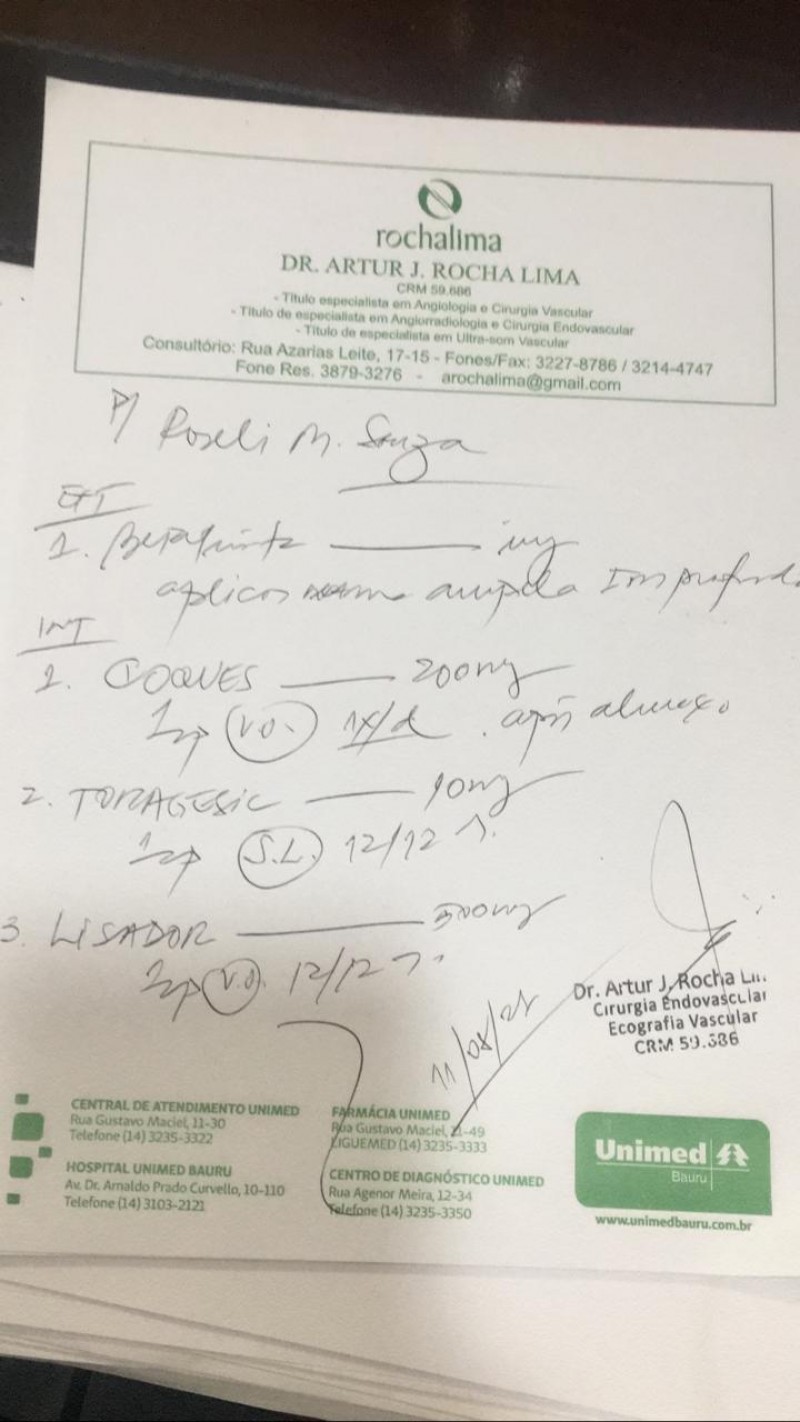 rochalima
DR. ARTUR J. ROCHA LIMA
CRM 59.686
- Título especialista em Angiologia e Cirurgia Vascular
- Título de especialista em Angiorradiologia e Cirurgia Endovascular
- Título de especialista em Ultra-som Vascular
Consultório: Rua Azarias Leite, 17-15 - Fones/Fax: 3227-8786 / 3214-4747
Fone Res. 3879-3276 - arochalima@gmail.com
P/ Roseli M. Souza
EXT
1. inj
aplicar ampola IM profunda
INT
1. COQUES 200mg
V.O. 1x/d. após almoço
2. TORAGESIC 10mg
S.L. 12/12
3. LISADOR 500mg
V.O. 12/12
Dr. Artur J. Rocha Li.
Cirurgia Endovascular
Ecografia Vascular
CRM 59.686
11/08/21
CENTRAL DE ATENDIMENTO UNIMED
Rua Gustavo Maciel, 11-30
Telefone (14) 3235-3322
HOSPITAL UNIMED BAURU
Av. Dr. Arnaldo Prado Curvello, 10-110
Telefone (14) 3103-2121
FARMÁCIA UNIMED
Rua Gustavo Maciel, 11-49
LIGUEMED (14) 3235-3333
CENTRO DE DIAGNÓSTICO UNIMED
Rua Agenor Meira, 12-34
Telefone (14) 3235-3350
Unimed
Bauru
www.unimedbauru.com.br